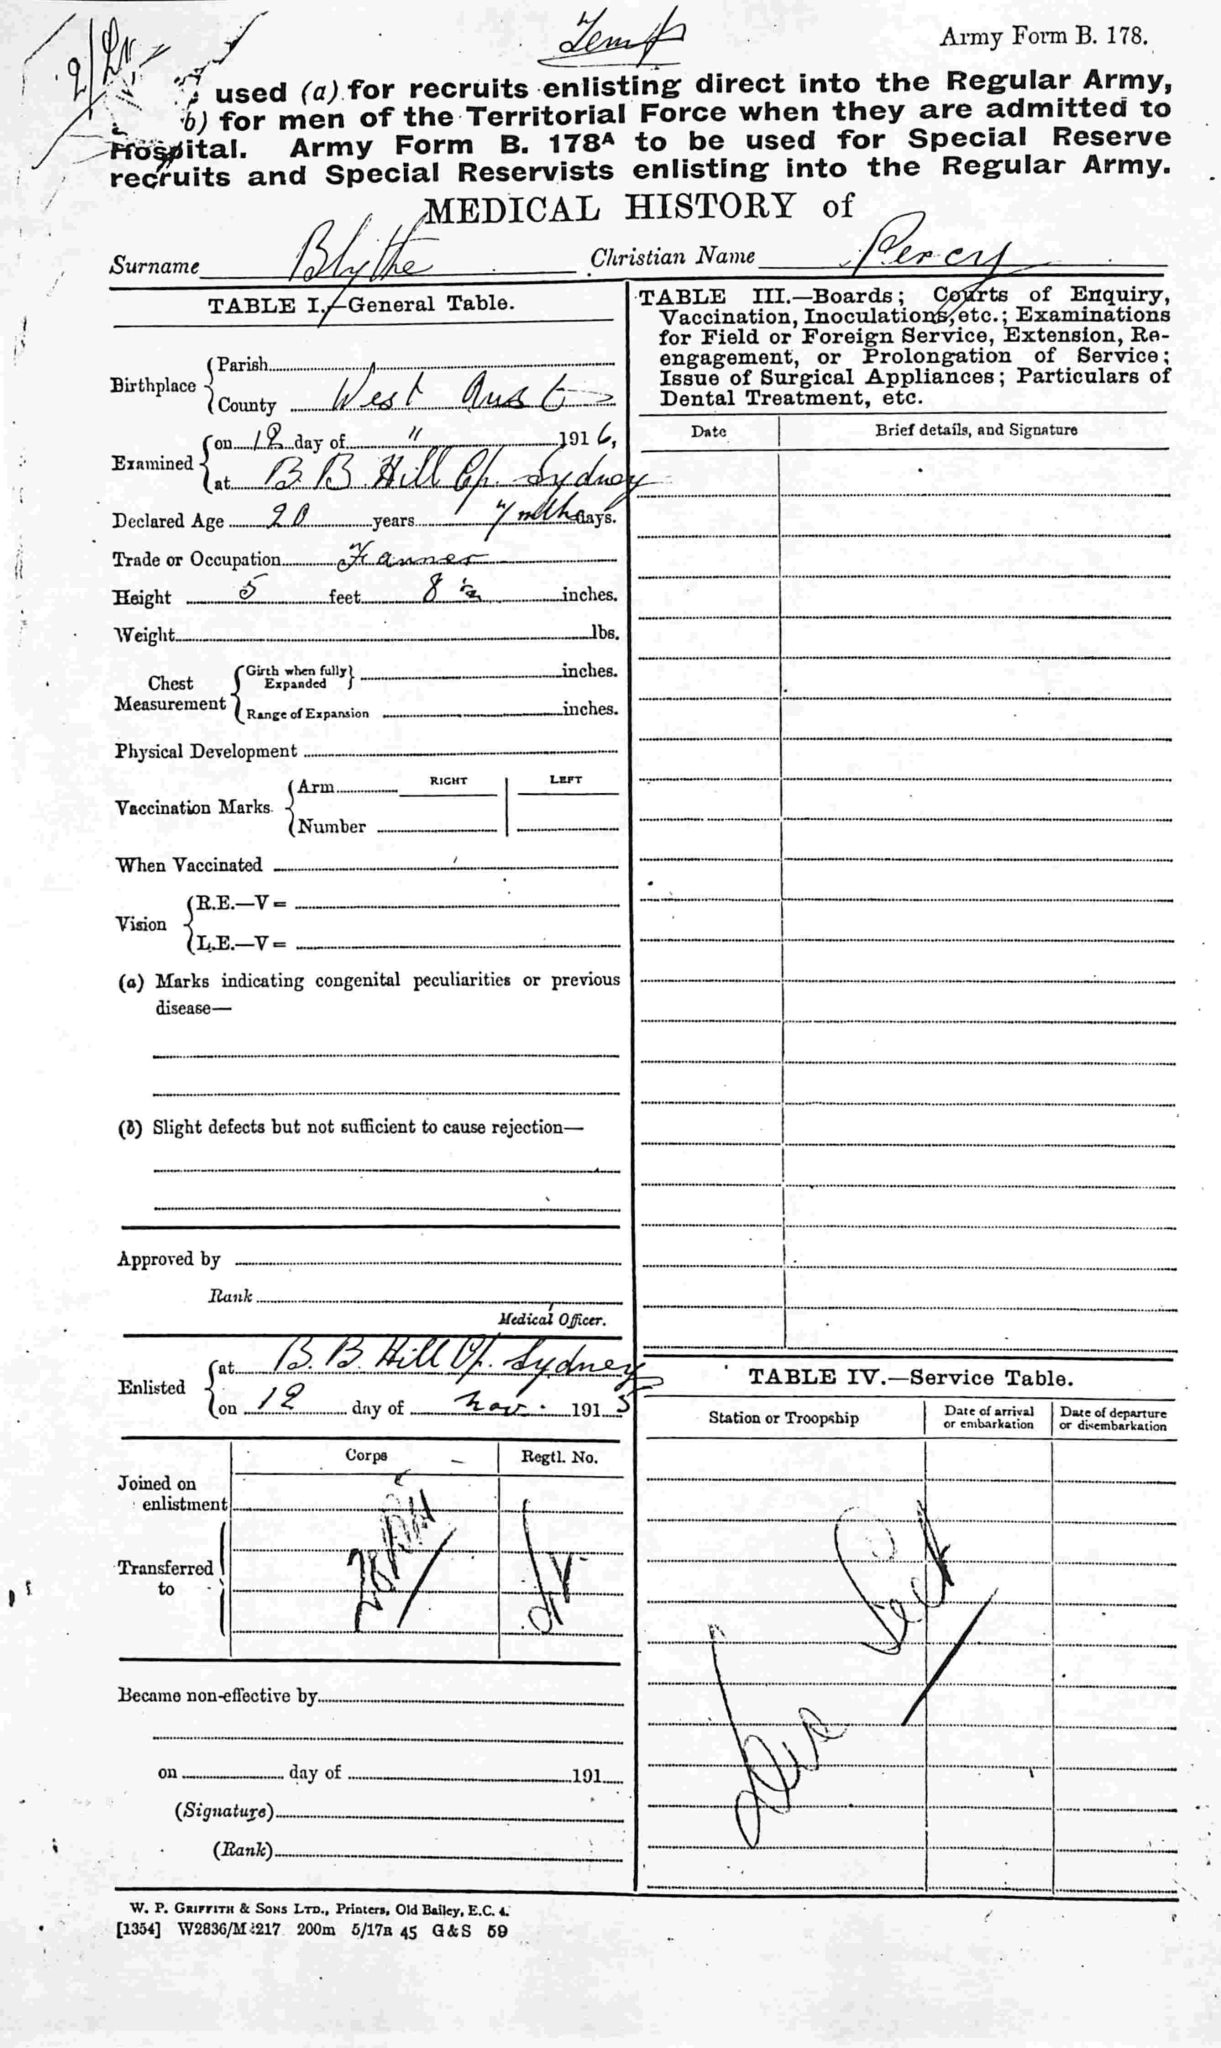 Temp
Army Form B. 178.
used (a) for recruits enlisting direct into the Regular Army,
b) for men of the Territorial Force when they are admitted to
Hospital. Army Form B. 178A to be used for Special Reserve
recruits and Special Reservists enlisting into the Regular Army.
MEDICAL HISTORY of
Surname Blythe Christian Name Percy
TABLE I.—General Table.
Birthplace
Parish
County West Aust
Examined
on 12 day of " 1916,
at B. B Hill Cp. Sydney
Declared Age 20 years 7 mths days.
Trade or Occupation Farmer
Height 5 feet 8 ½ inches.
Weight lbs.
Chest Measurement
Girth when fully Expanded inches.
Range of Expansion inches.
Physical Development
Vaccination Marks
RIGHT LEFT
Arm
Number
When Vaccinated
Vision
R.E.—V =
L.E.—V =
(a) Marks indicating congenital peculiarities or previous
disease—
(b) Slight defects but not sufficient to cause rejection—
Approved by
Rank
Medical Officer.
Enlisted
at B. B. Hill Cp. Sydney
on 12 day of Nov. 1915
Corps Regtl. No.
Joined on
enlistment
Transferred
to
Became non-effective by
on day of 191
(Signature)
(Rank)
TABLE III.—Boards; Courts of Enquiry,
Vaccination, Inoculations, etc.; Examinations
for Field or Foreign Service, Extension, Re-
engagement, or Prolongation of Service;
Issue of Surgical Appliances; Particulars of
Dental Treatment, etc.
Date Brief details, and Signature
TABLE IV.—Service Table.
Station or Troopship
Date of arrival
or embarkation
Date of departure
or disembarkation
W. P. GRIFFITH & SONS LTD., Printers, Old Bailey, E.C. 4.
[1354] W2836/M1217 200m 5/17B 45 G & S 59